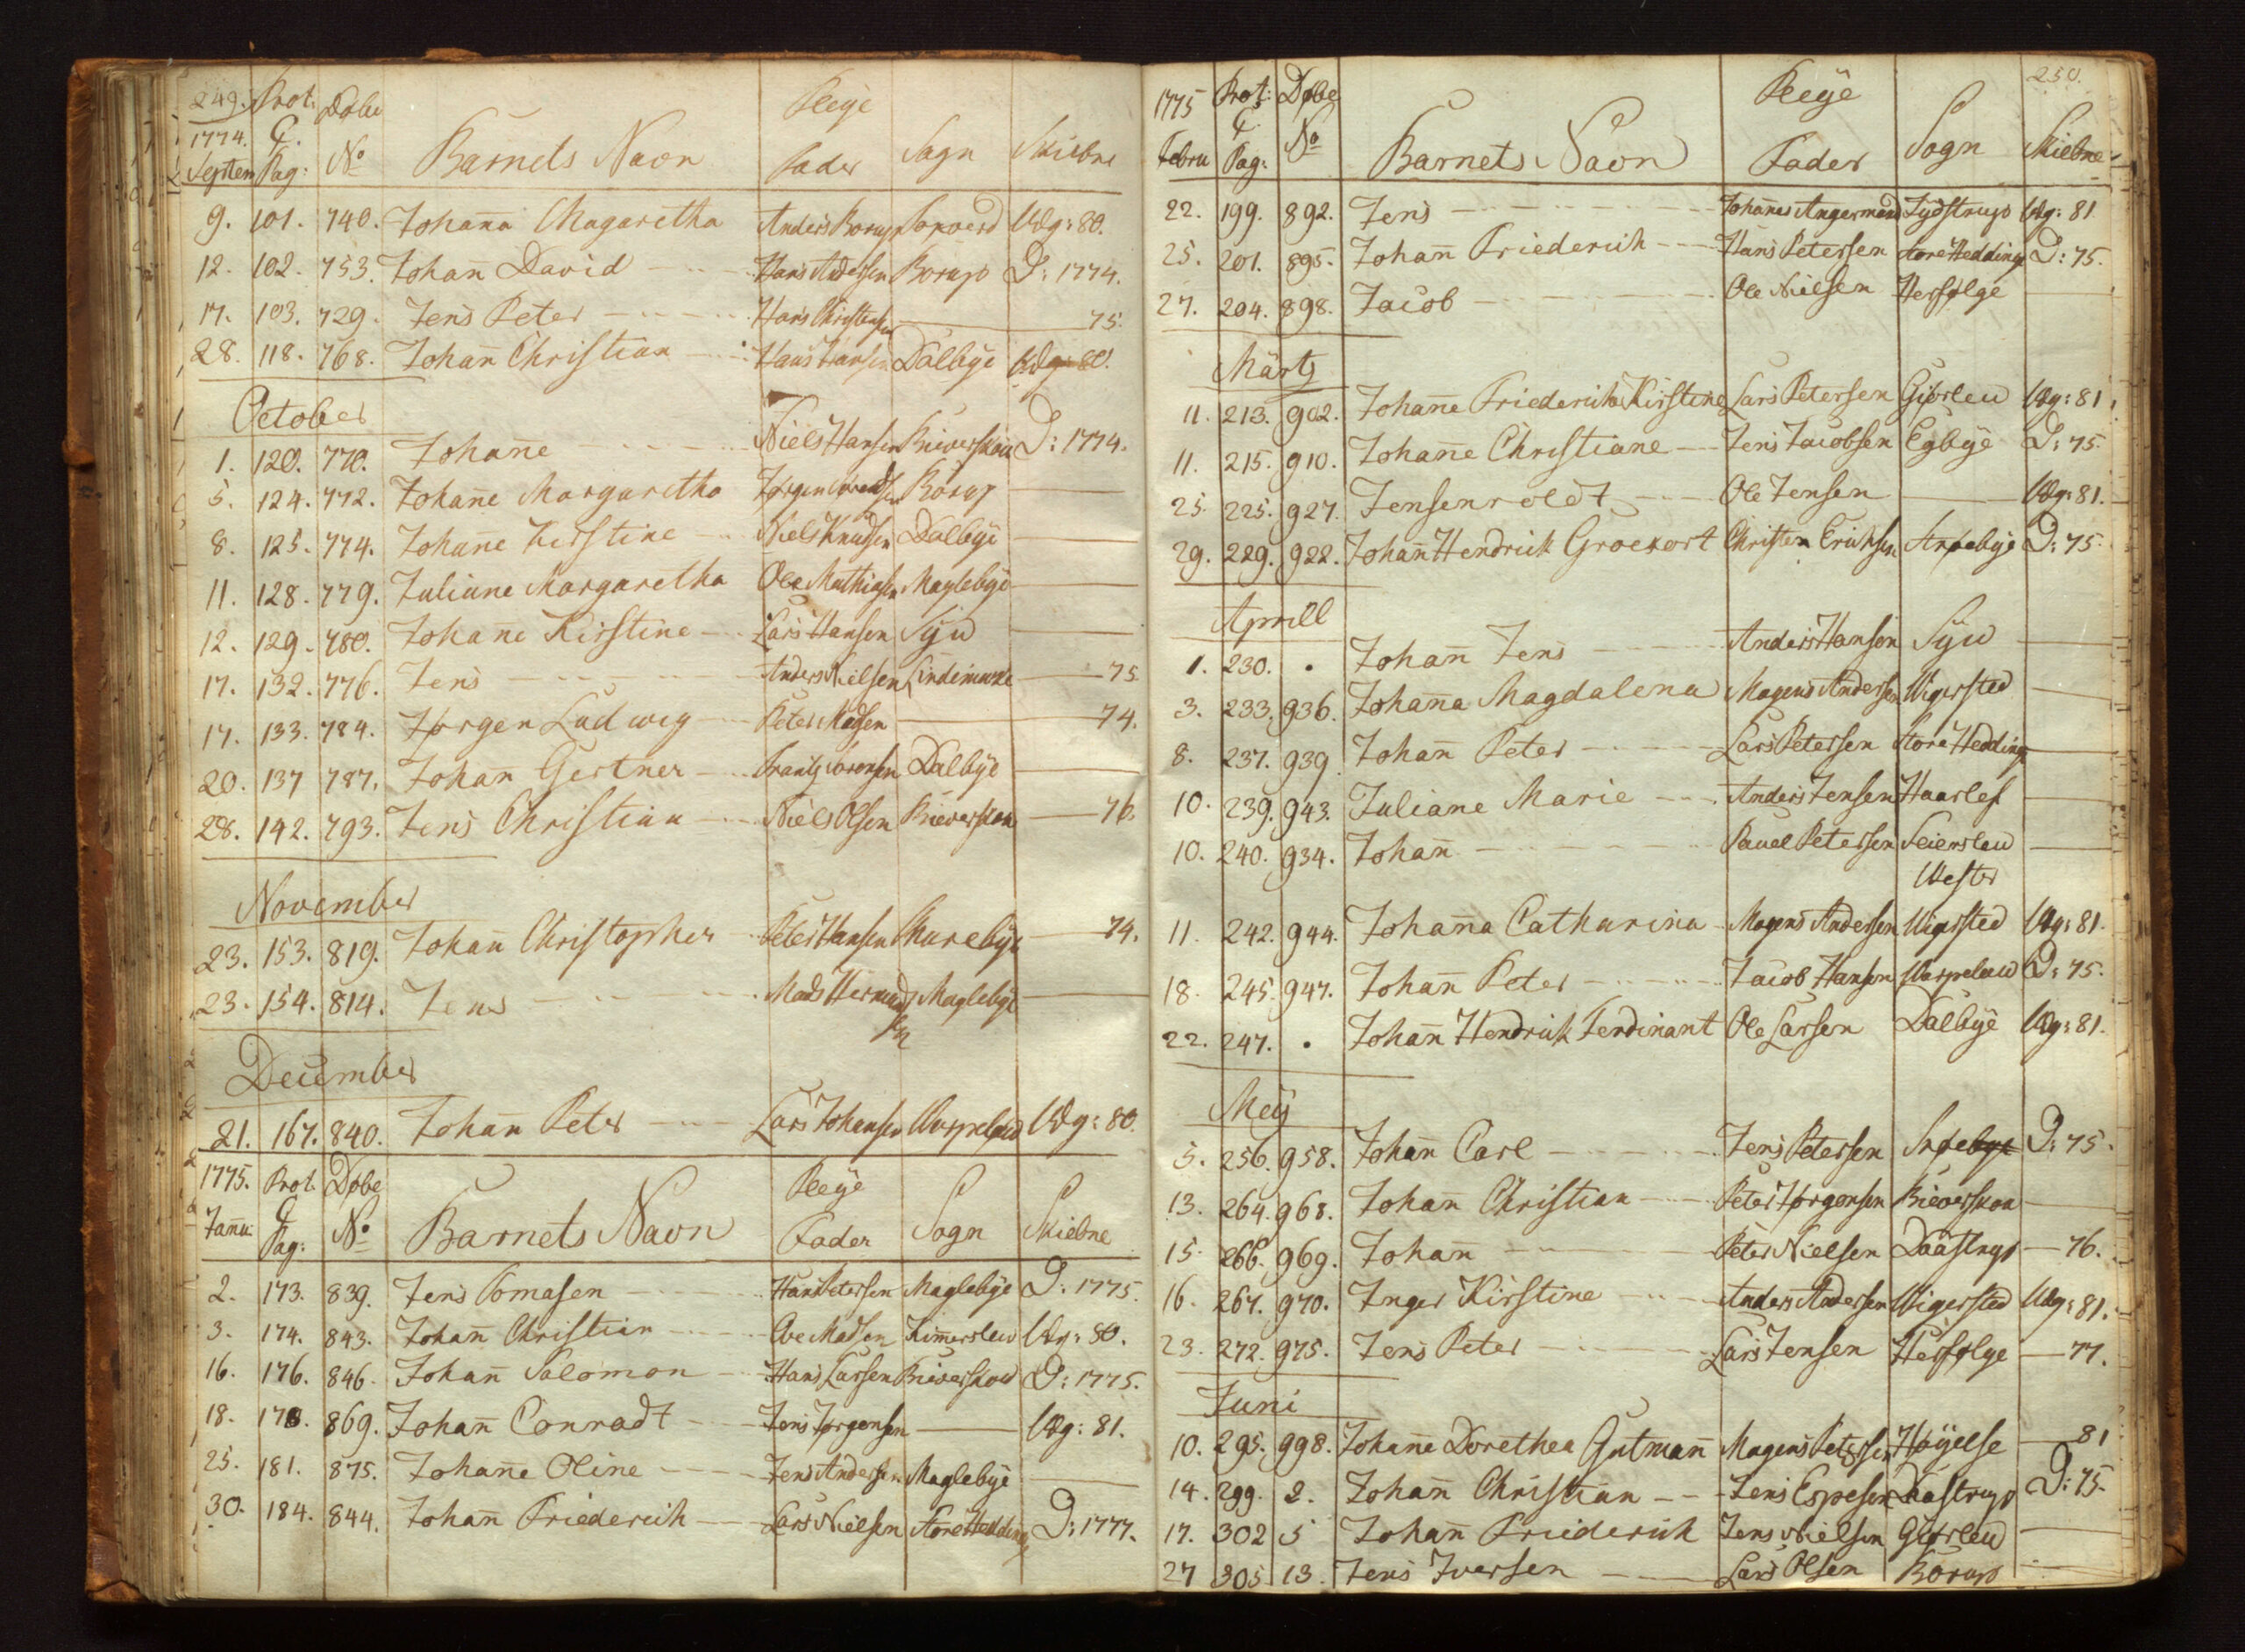 249. Prot: Døbe Pleÿe
1774. C.
Septem Pag: No Barnets Navn Fader Sogn Skiebne
9. 101. 740. Johana Magaretha Anders Borup Wdg: 80.
12. 102. 753. Johan̄ David Hans Andersen Borup D: 1774.
17. 103. 729. Jens Peter Hans Christensen — 75.
28. 118. 768. Johan̄ Christian Hans Hansen Dalbÿe Wdg: 80.
October
1. 120. 770. Johan̄e Niels Hansen Bieverskou D: 1774.
5. 124. 772. Johan̄e Margaretha Jørgen Borup —
8. 125. 774. Johan̄e Kirstine Niels Knudsen Dalbÿe —
11. 128. 779. Juliane Margaretha Ole Mathiasen Maglebÿe —
12. 129. 780. Johan̄e Kirstine Lars Hansen Sÿw —
17. 132. 776. Jens Anders Nielsen Lindemarke — 75
17. 133. 784. Jørgen Ludwig Peter Madsen — 74.
20. 137 787. Johan̄ Gertner Frantz Sørensen Dalbÿe —
28. 142. 793. Jens Christian Niels Olsen Bieverskou — 76.
November
23. 153. 819. Johan̄ Christopher Peter Hansen Karebÿe — 74.
23. 154. 814. Jens Mads Maglebÿe —
December
21. 167. 840. Johan̄ Peter Lars Johansen Warpelew Wdg: 80.
1775. Prot. Døbe Pleÿe
Janu: C Pag: No Barnets Navn Fader Sogn Skiebne
2. 173. 839. Jens Tomasen Hans Petersen Maglebÿe D: 1775.
3. 174. 843. Johan̄ Christian Ove Madsen Kimerslew Wdg: 80.
16. 176. 846. Johan̄ Salomon Hans Larsen Bieverskow D: 1775.
18. 178. 869. Johan̄ Conradt Jens Jørgensen — Wdg: 81.
25. 181. 875. Johan̄e Oline Jens Andersen Maglebÿe —
30. 184. 844. Johan̄ Friederich Lars Nielsen Store Hedding D: 1777.
250.
1775 Prot: Døbe Pleÿe
Febru C. Pag: No Barnets Navn Fader Sogn Skiebne
22. 199. 892. Jens Johan̄es Angermand Jÿdstrup Wdg: 81
25. 201. 895. Johan̄ Friederich Hans Petersen Store Hedding D: 75.
27. 204. 898. Jacob Ole Nielsen Herfølge —
Märtz
11. 213. 902. Johan̄e Friedericka Kirstine Lars Petersen Giørlew Wdg: 81.
11. 215. 910. Johan̄e Christiane Jens Jacobsen Egbÿe D: 75.
25. 225. 927. Jensenroldt Ole Jensen — Wdg: 81.
29. 229. 922. Johan̄ Hendrick Groekort Christen Erichsen D: 75.
Aprill
1. 230. . Johan̄ Jens Anders Hansen Sÿw —
3. 233. 936. Johan̄a Magdalena Mogens Andersen Wigersted —
8. 237. 939. Johan̄ Peter Lars Petersen Store Hedding —
10. 239. 943. Juliane Marie Anders Jensen Haarlef —
10. 240. 934. Johan̄ Pauel Petersen Seierslew —
Wester
11. 242. 944. Johan̄a Catharina Mogens Andersen Wigersted Wdg: 81.
18. 245. 947. Johan̄ Peter Jacob Hansen Warpelew D: 75.
22. 247. . Johan̄ Hendrick Ferdinant Ole Larsen Dalbÿe Wdg: 81.
Meÿ
5. 256. 958. Johan̄ Carl Jens Petersen D: 75.
13. 264. 968. Johan̄ Christian Peter Jørgensen Bieverskou —
15. 266. 969. Johan̄ Peter Nielsen Daastrup — 76.
16. 267. 970. Inger Kirstine Anders Andersen Wigersted Wdg: 81.
23. 272. 975. Jens Peter Lars Jensen Herfølge — 77.
Juni
10. 295. 998. Johan̄e Dorethea Gutman̄ Mogens Petersen Høÿelse — 81
14. 299. 2. Johan̄ Christian Jens Espesen Daastrup D: 75.
17. 302 5 Johan̄ Friederich Jens Nielsen Giørlew —
27 305 13. Jens Iversen Lars Olsen Borup —